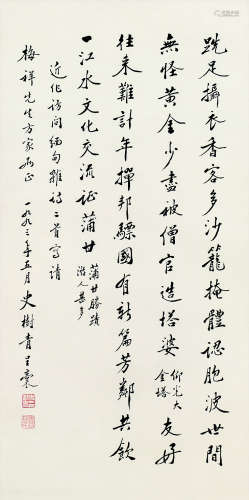 跣足攝衣香客多沙籠掩體認胞波世間
無怪黃金少盡被僧官造塔婆仰光大金塔友好
往來難計年撣邦驃國有新篇芳鄰共飲
一江水文化交流証蒲甘蒲甘勝蹟游人甚多
近作訪問緬甸雜詩二首寫請
梅祥先生方家教正一九九三年五月史樹青呈稾